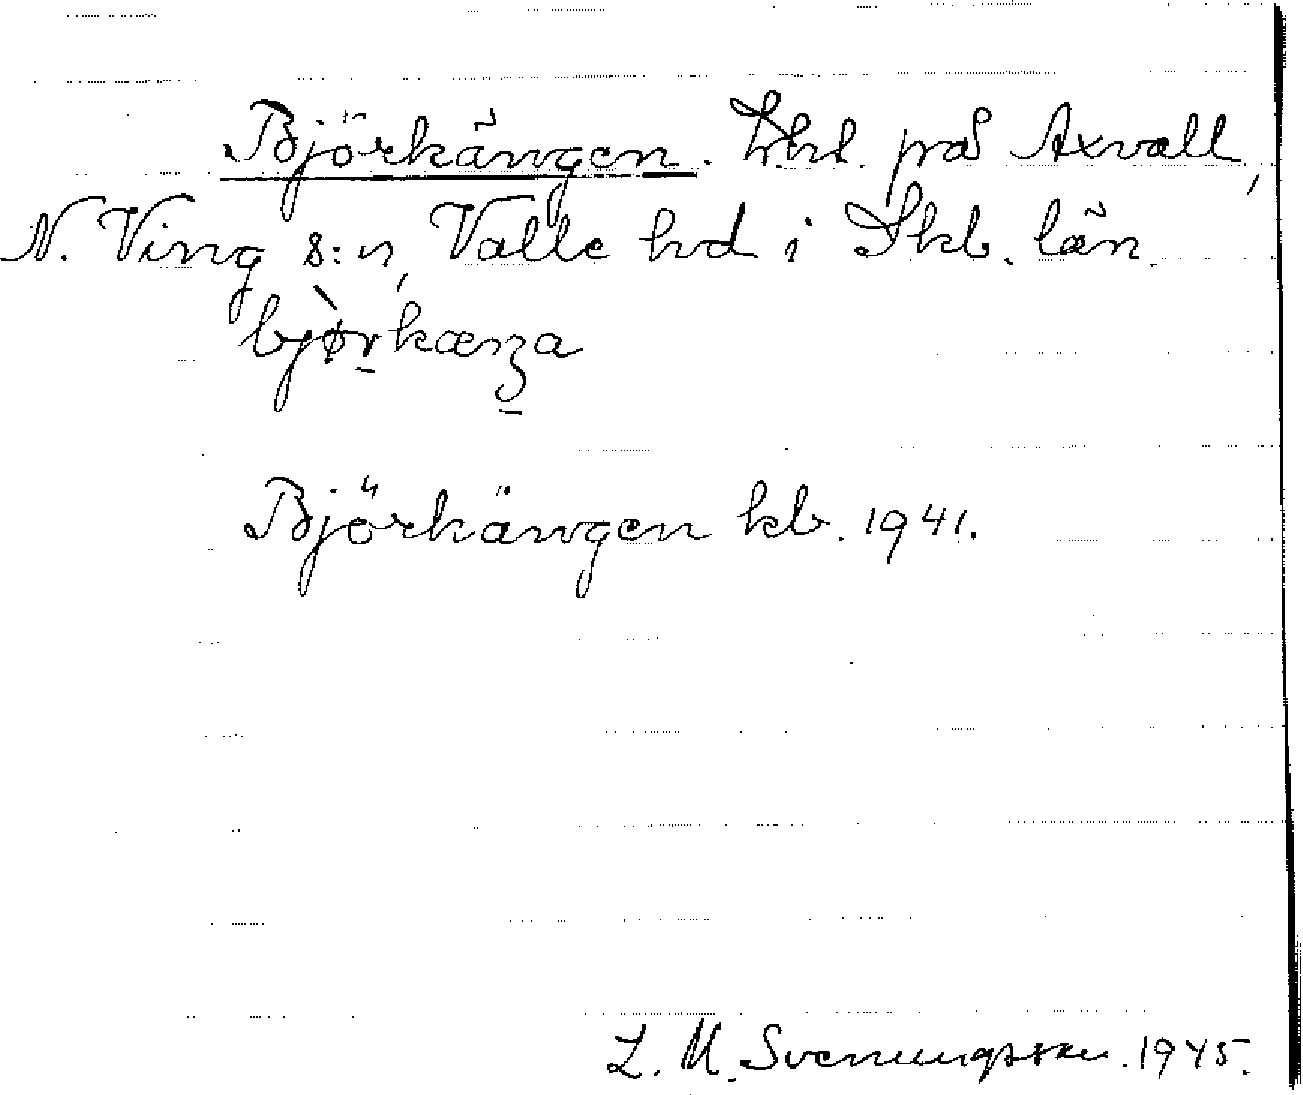 Björkängen. Lht. på Axvall,
N. Ving s:n, Valle hd i Skb. län
bjørkæŋa
Björkängen kb. 1941.
L. M. Svenungsson. 1945.